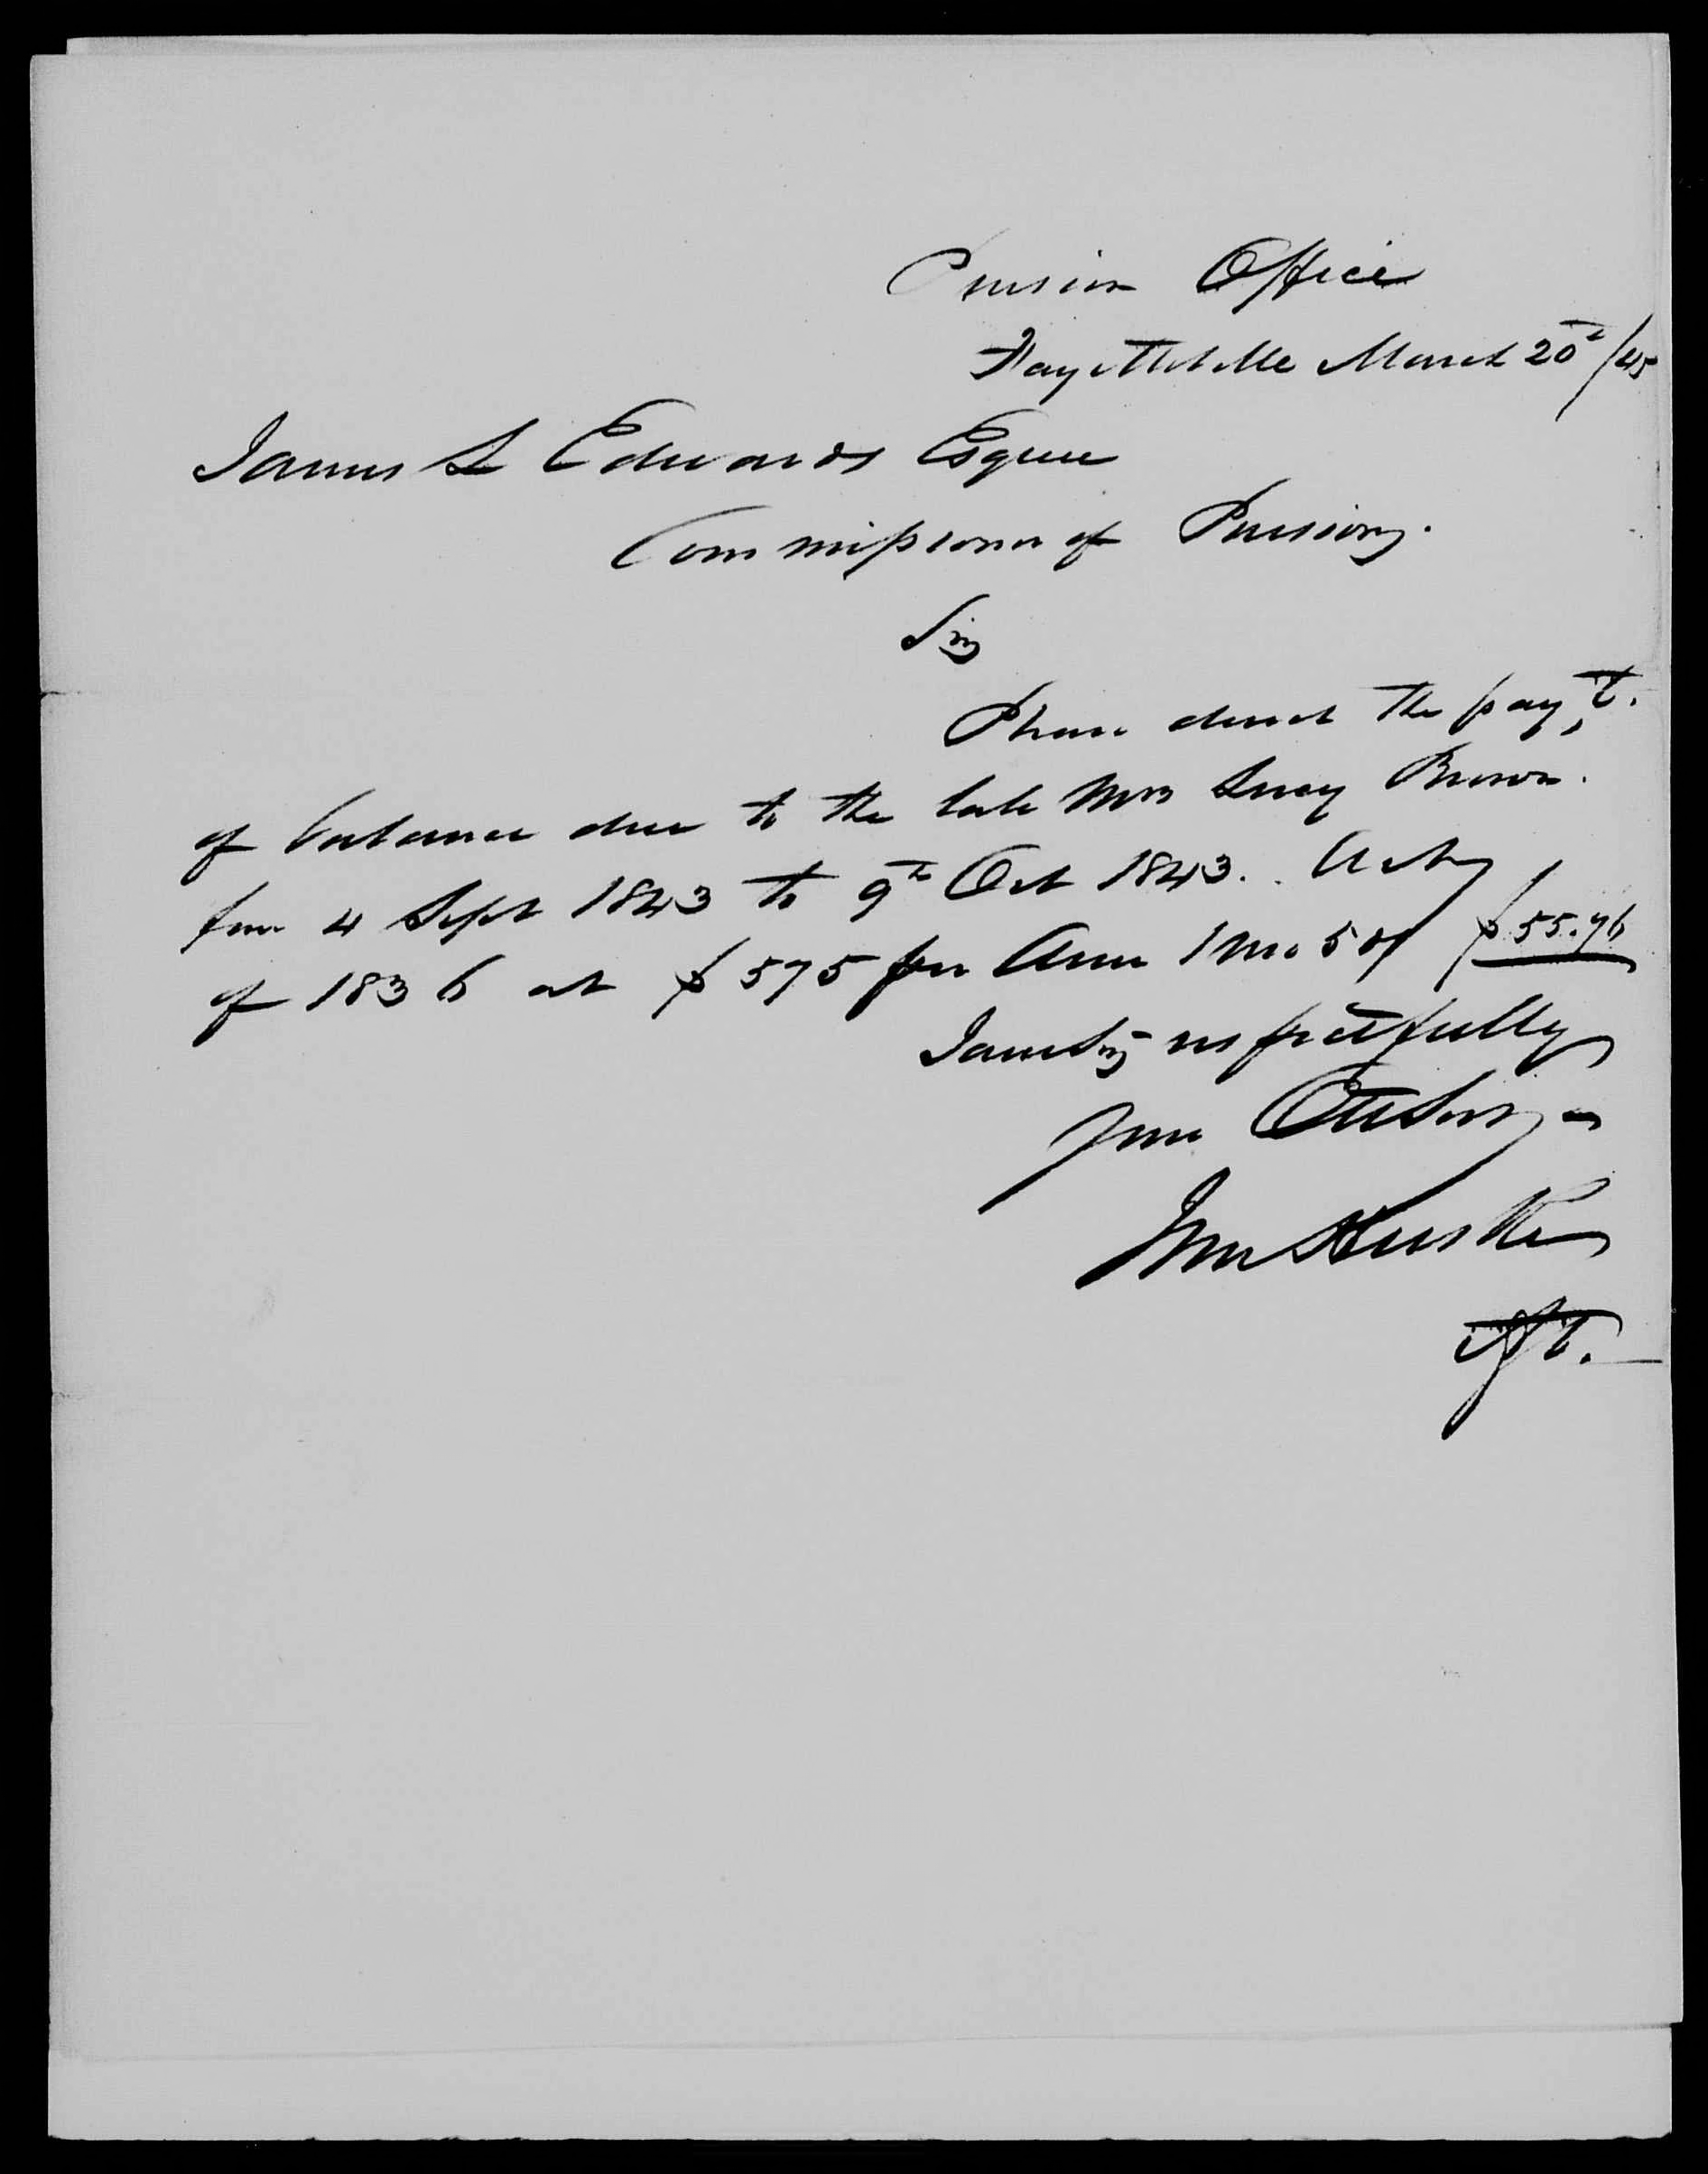 Pension Office
Fayetteville March 20th/45
James L Edwards Esquire
Commissioner of Pensions.
Sir
Please direct the pay,t.
of balance due to the late Mrs Lucy Brown.
from 4 Sept 1843 to 9th Oct 1843. Act
of 1836 at $575 per Ann 1 mo 5 ds $55.96
I am Sir respectfully
Your Obt Servt
Jno Huske
Agt.